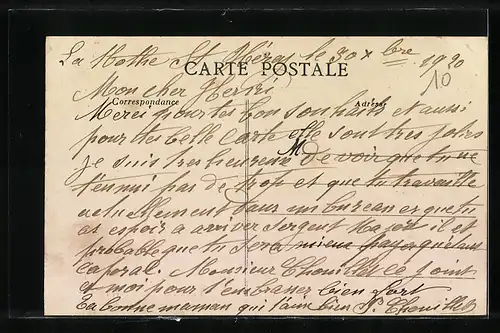 La Mothe St Héray le 30 xbre 1920
10
CARTE POSTALE
Mon cher Henri
Correspondance
Adresse
Merci pour tes bon souhaits et aussi
pour tes belle carte elle sont très jolies
je suis tres heureuse de voir que tu ne
t'ennui pas de trop et que tu travaille
actuellement dans un bureau et que tu
as espoir a arriver sergent il et
probable que tu sera mieux payer quetant
caporal. Monsieur Thouillet ce joint
et moi pour t'embrasser bien fort
ta bonne maman qui t'aime bien P. Thouillet